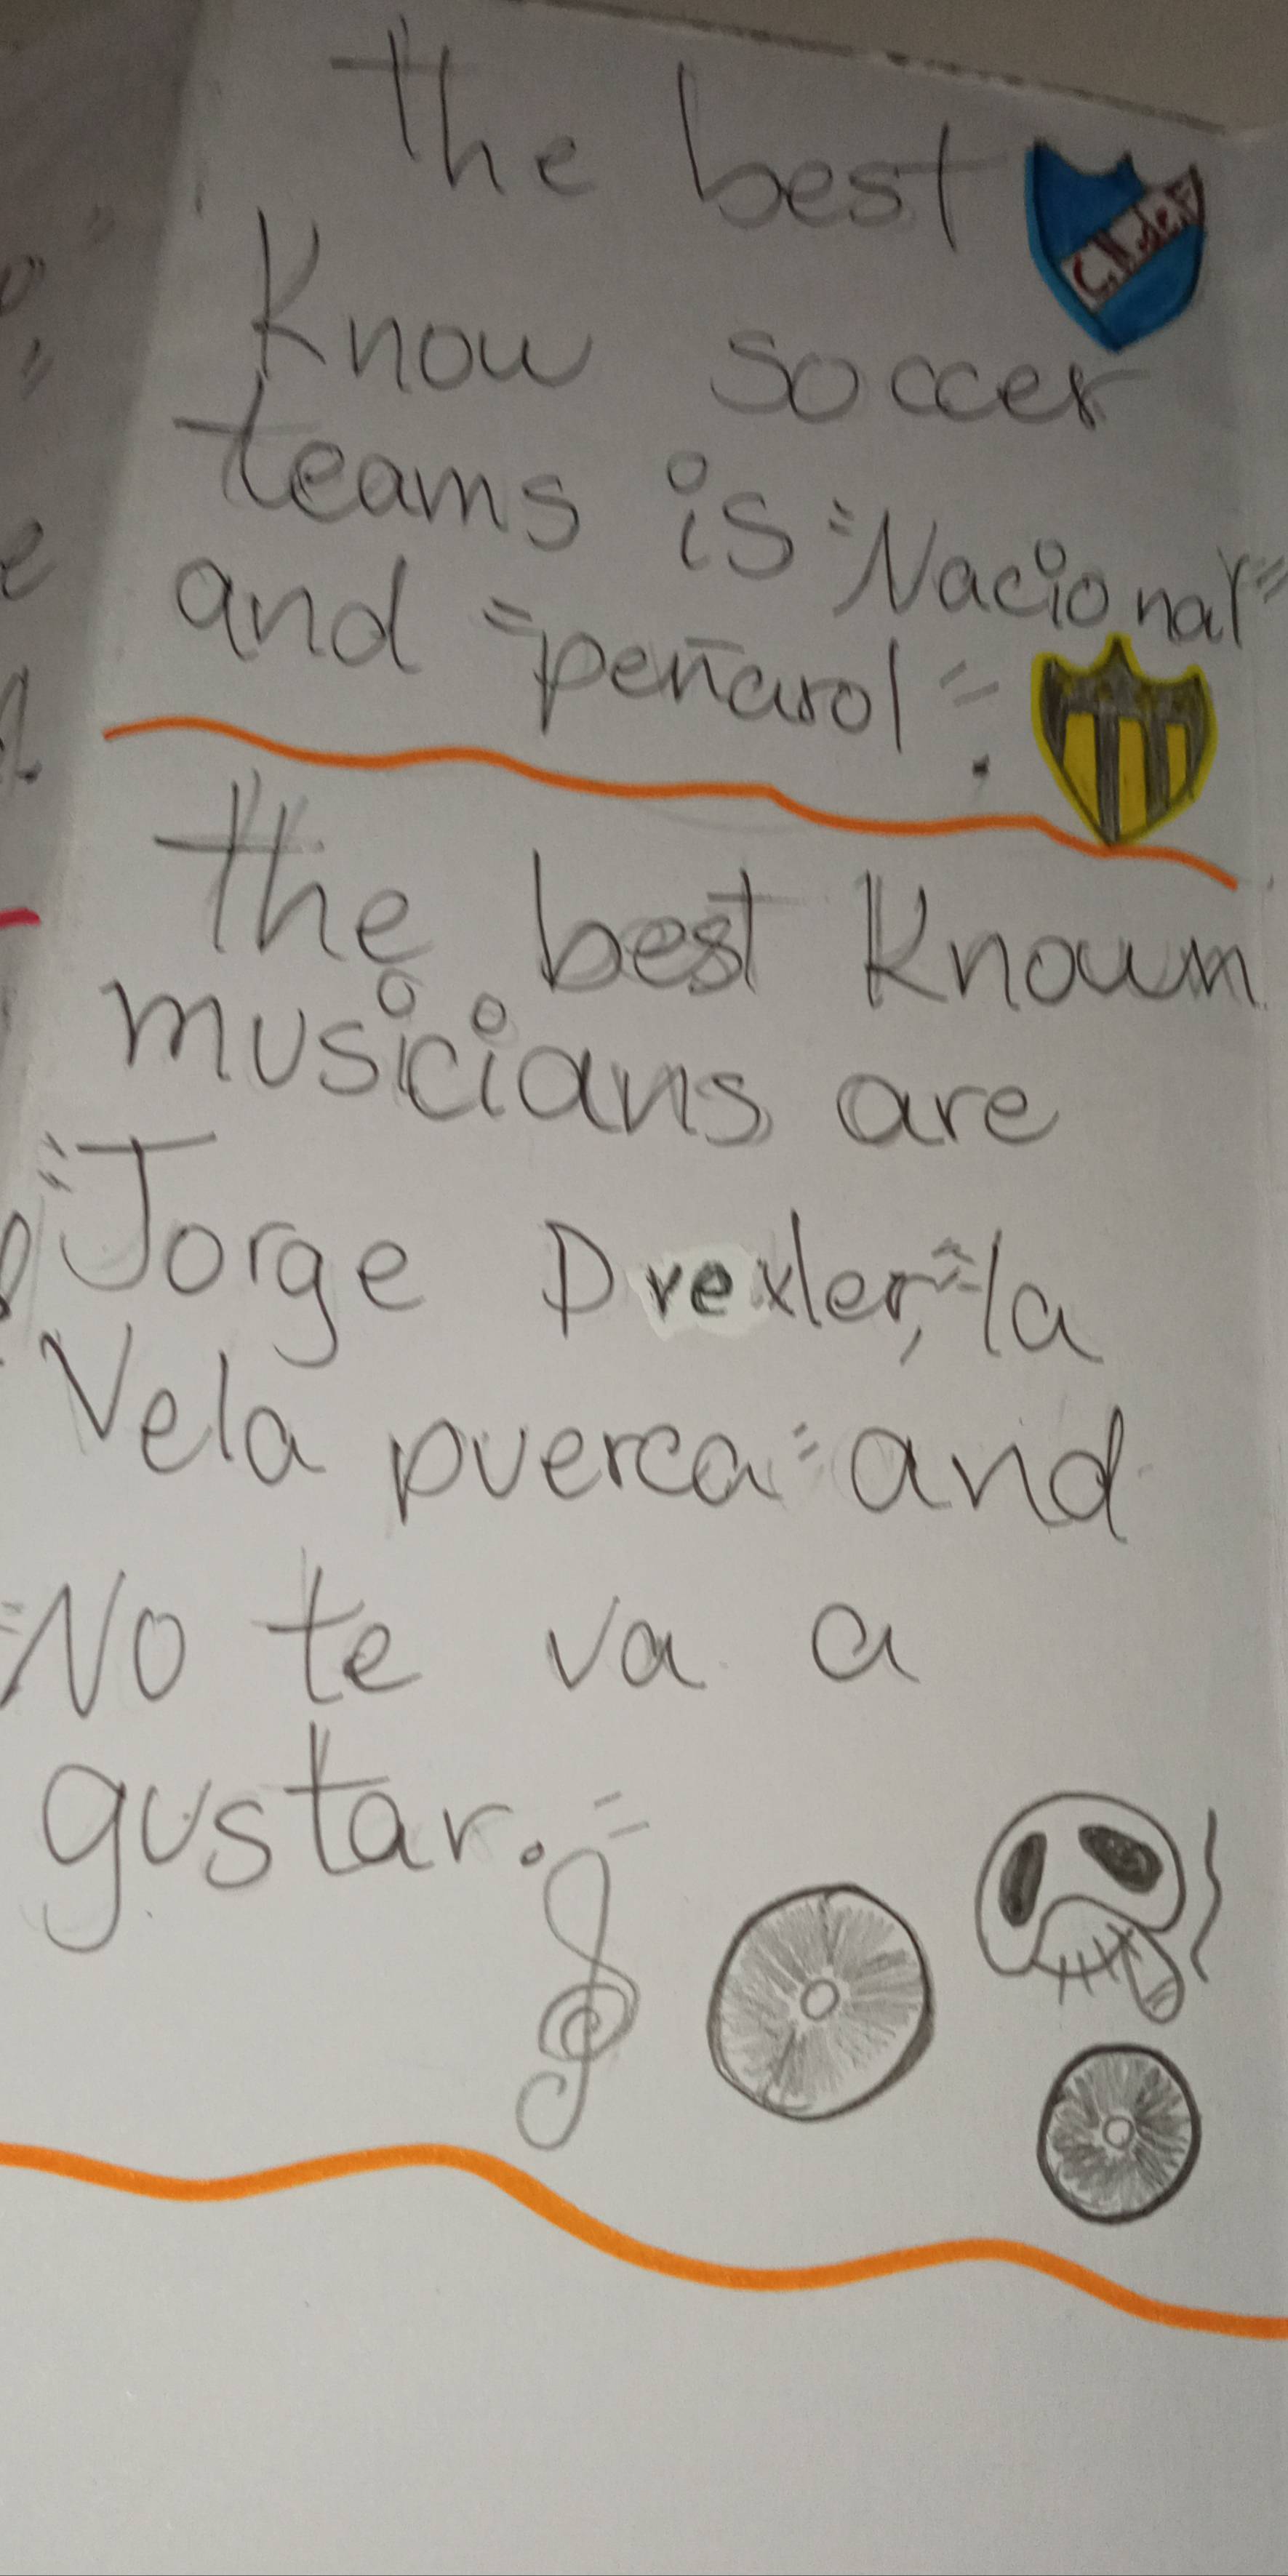 the best
C.N.de.F
Know soccer
teams is "Nacional"
and "peñarol".
the best Knowm
musicians are
"Jorge Drexler," "la
Vela puerca" and
"No te va a
gustar."